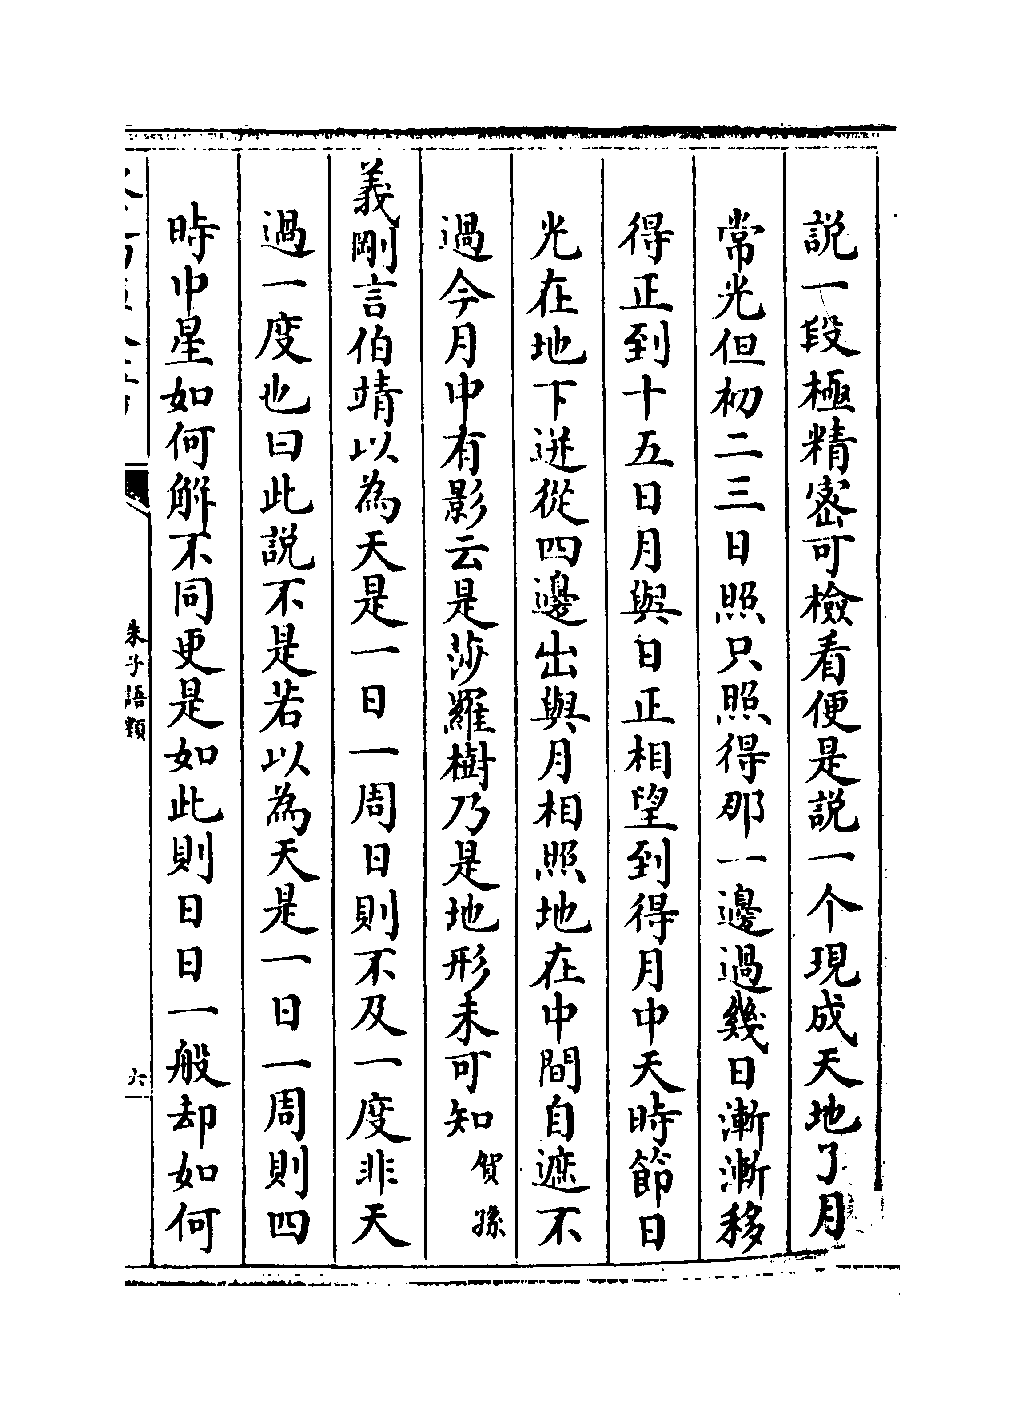 説一段極精密可檢看便是説一个現成天地了月
常光但初二三日照只照得那一邊過幾日漸漸移
得正到十五日月與日正相望到得月中天時節日
光在地下迸從四邊出與月相照地在中間自遮不
過今月中有影云是莎羅樹乃是地形未可知賀孫
義剛言伯靖以為天是一日一周日則不及一度非天
過一度也曰此説不是若以為天是一日一周則四
時中星如何解不同更是如此則日日一般却如何
朱子語類
六